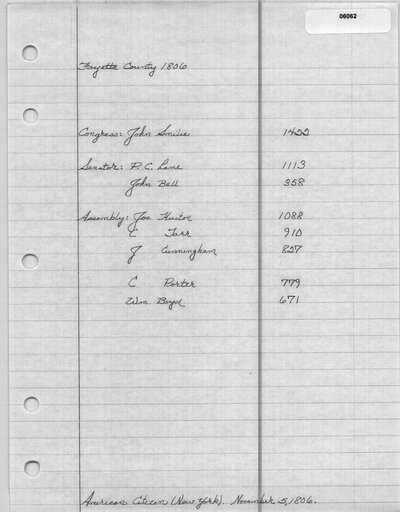 06062
Fayette County 1806
Congress: John Smilie 1422
Senator: P. C. Lane 1113
John Bell 358
Assembly: Jos. Huston 1088
C Tarr 910
J Cunningham 827
C Porter 779
Wm. Boyd 671
American Citizen (New York). November 5, 1806.